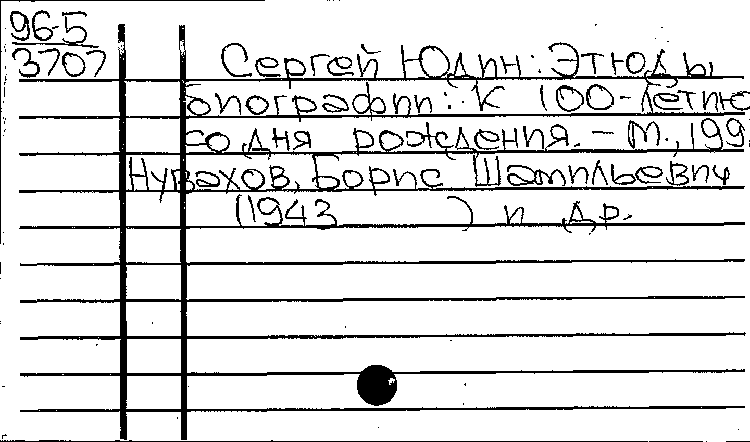 96-5
3707
Сергей Юдин: Этюды
биографии: К 100-летию
со дня рождения. - М., 199
Нувахов, Борис Шамильевич
(1943 ) и др.